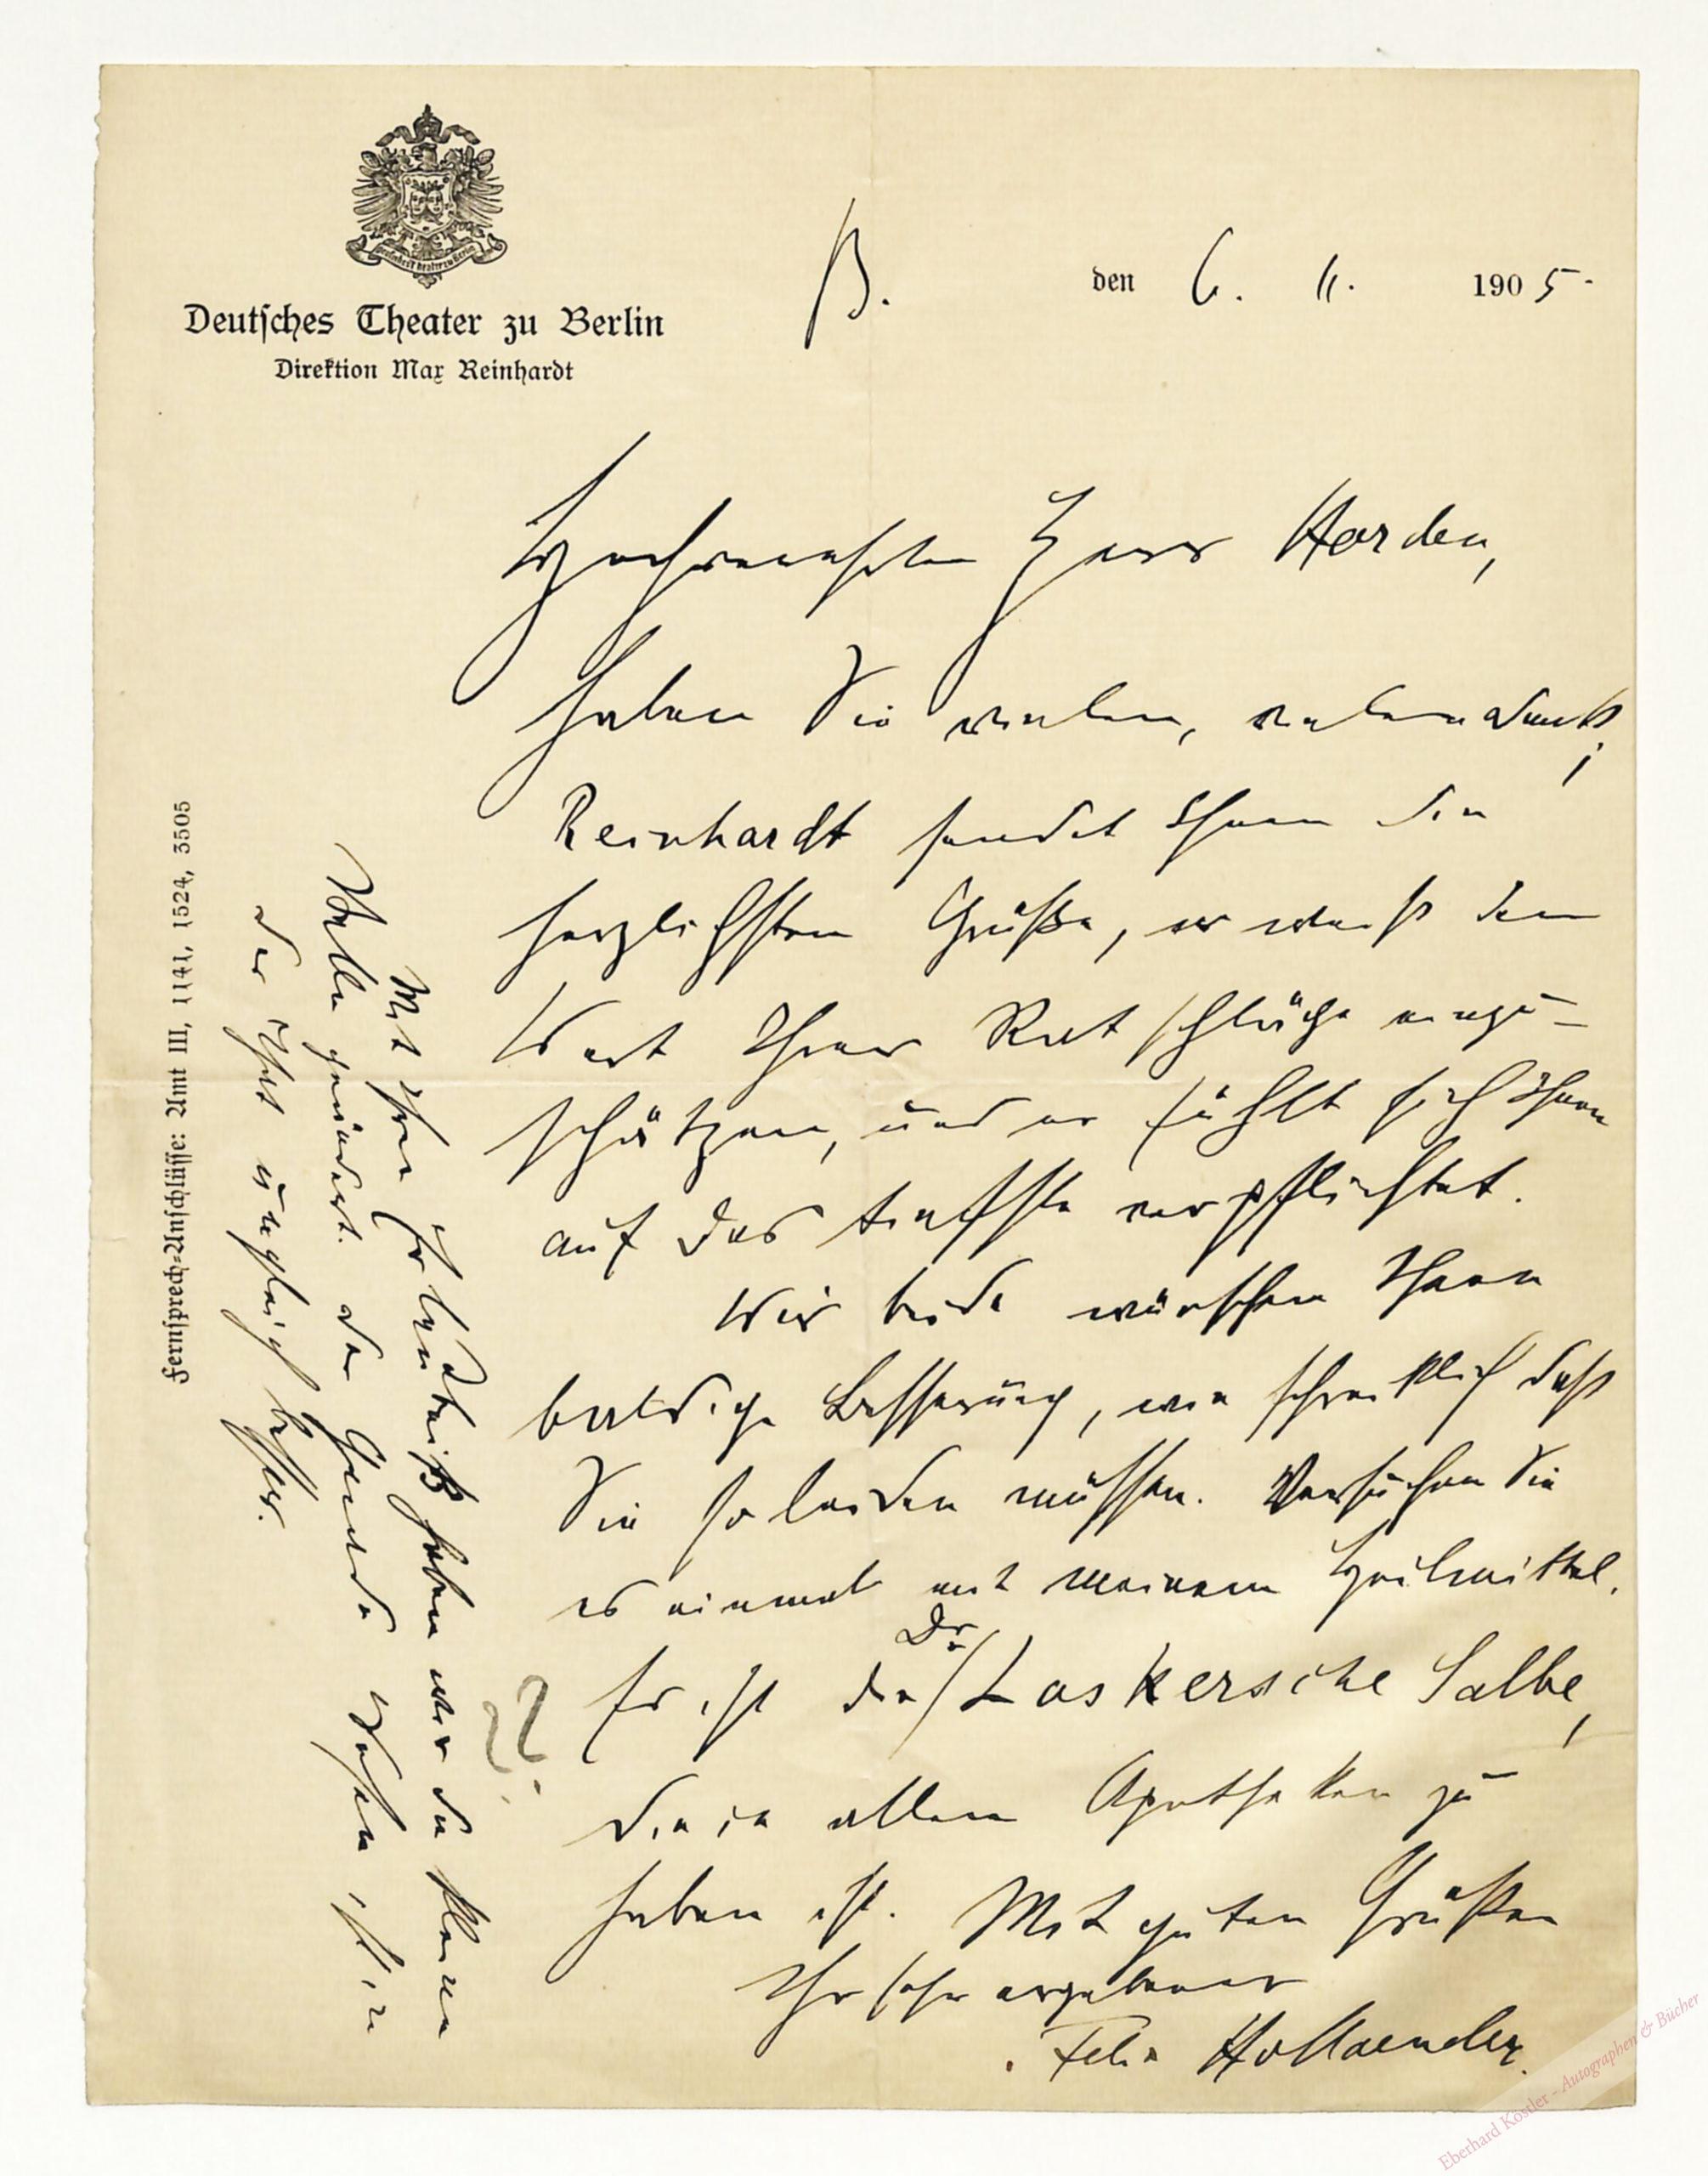 Deutsches Theater zu Berlin
Direktion Max Reinhardt
B. den 6. 11. 1905.
Hochverehrter Herr Harden,
haben Sie vielen, vielen Dank;
Reinhardt sendet Ihnen die
herzlichsten Grüße, er weiß den
Wert Ihrer Ratschläge einzu-
schätzen, und er fühlt sich Ihnen
auf das tiefste verpflichtet.
Wir beide wünschen Ihnen
baldige Besserung, wie schrecklich daß
Sie so leiden müssen. Versuchen Sie
es einmal mit meinem Heilmittel.
Es ist die Dr. Laskersche Salbe,
die in allen Apotheken zu
haben ist. Mit guten Grüßen
Ihr sehr ergebener
Felix Hollaender.
Mit Ihrer Erlaubniß haben wir die kleine
Stelle geändert. Der Gerade Wesen ist in
der That ungleich besser.
Fernsprech-Anschlüsse: Amt III, 1141, 1524, 3505
Eberhard Köstler - Autographen & Bücher